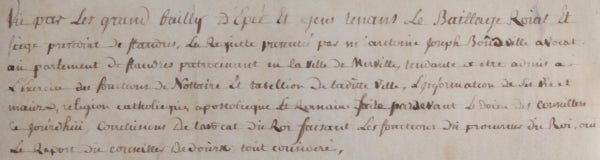 Vu par Les grand bailly d'Epée Et gens tenans Le Bailliage Roial Et
siege presidial de flandres, Le Requette presenté par mr antoine Joseph Bonduille avocat
au parlement de flandres patrocinant en la ville de Merville, tendante a etre admis a
L'exercice des fonctions de Nottaire Et tabellion de laditte ville, L'information de ses vie et
mœurs, religion catholique, apostolique Et Romaine faite pardevant Le doien des conseillers
ce jourd'huii Conclusions de l'avocat du Roi faisant Les fonctions du procureur du Roi, oui
Le Raport du conseiller tout consideré,